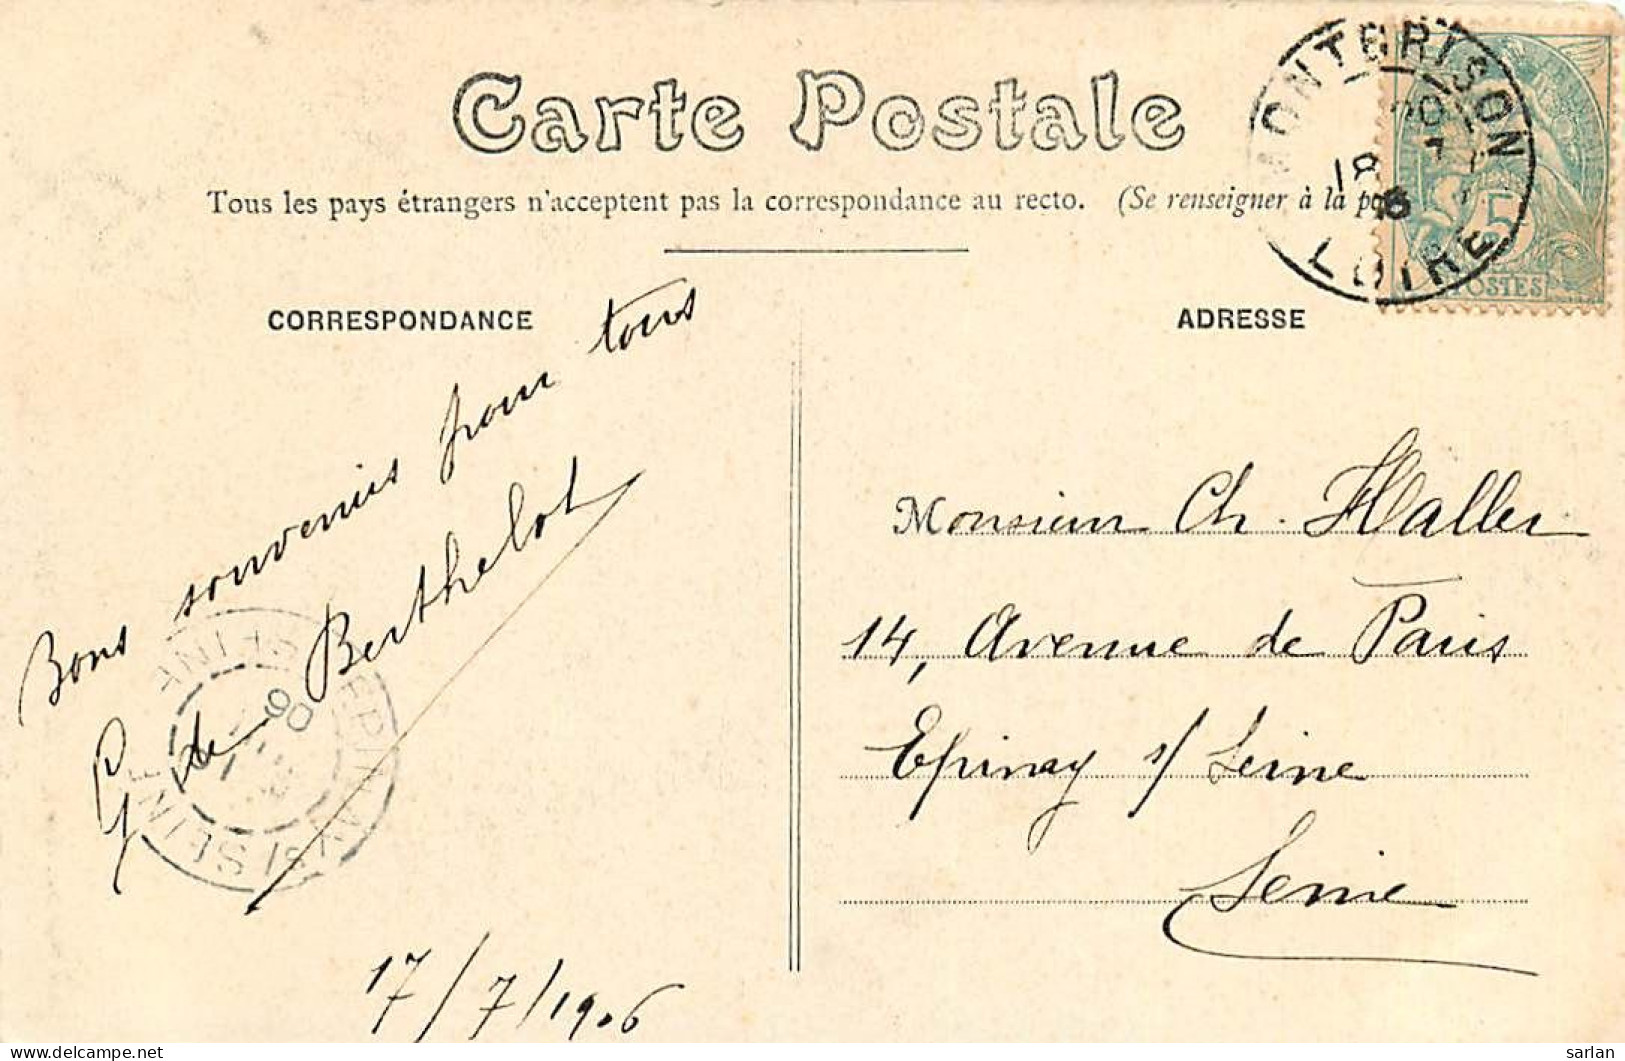 Carte Postale
Tous les pays étrangers n'acceptent pas la correspondance au recto. (Se renseigner à la
MONTBRISON
20
18
LOIRE
5
POSTES
CORRESPONDANCE
ADRESSE
Bons souvenirs pour tous
G de Berthelot
17/7/1906
Monsieur Ch. Haller
14, Avenue de Paris
Epinay s/ Seine
Seine
EPINAY S/ SEINE
SEINE
06
delcampe.net
sarlan